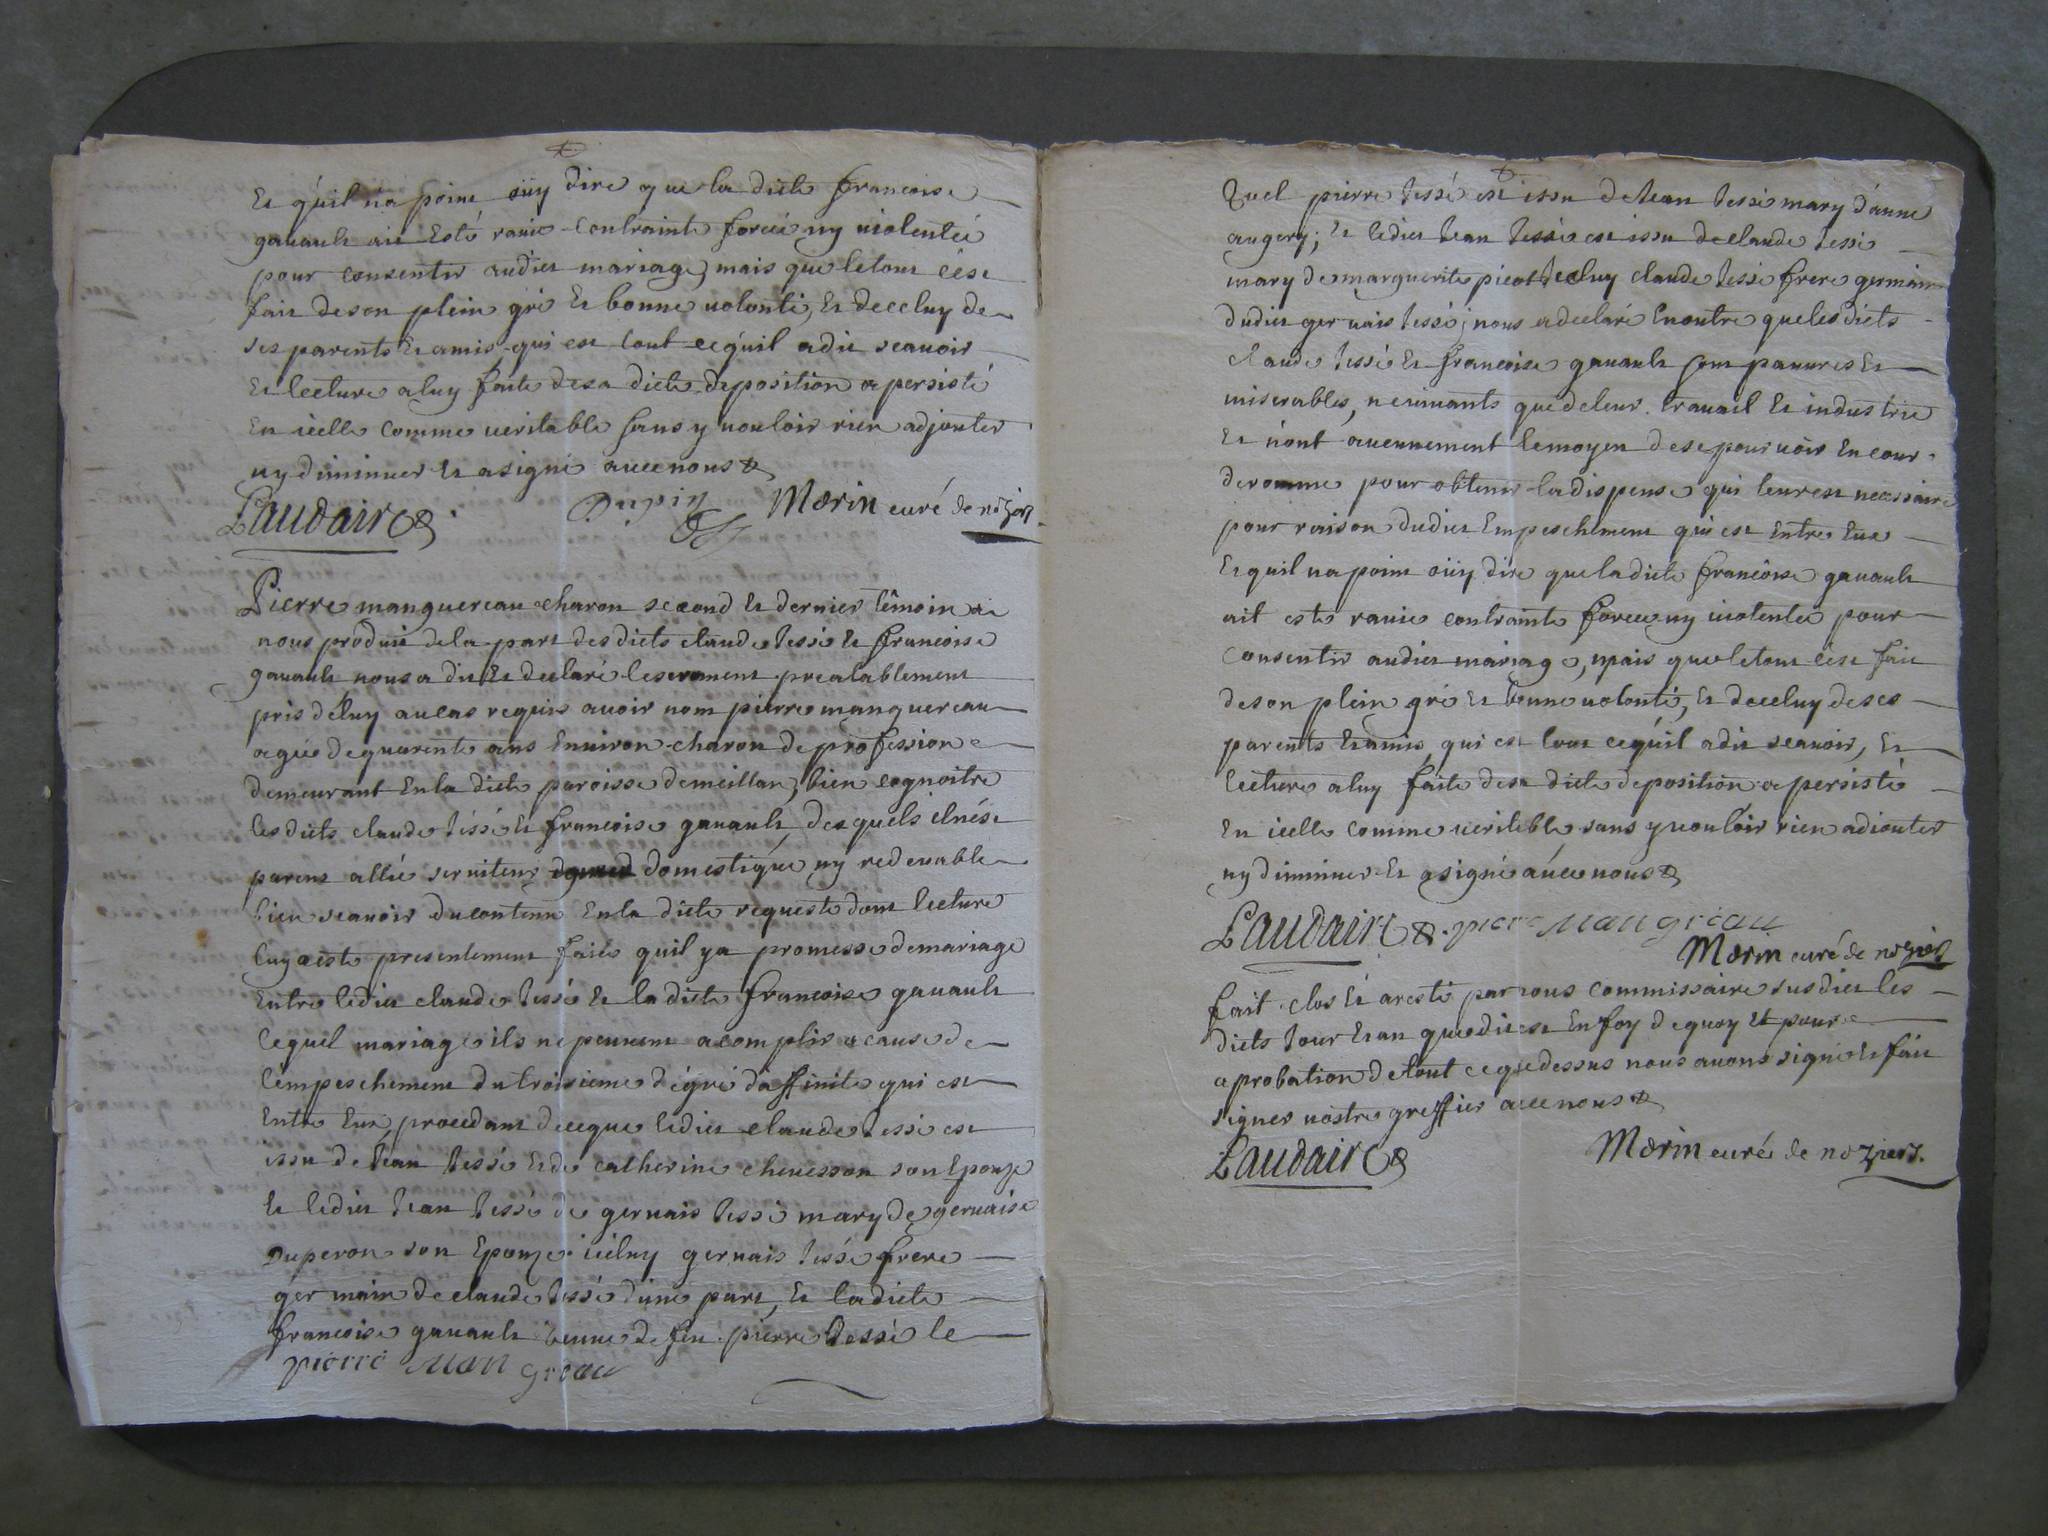 Et qu'il na point oüy dire que la dicte francoise
gauault ait Esté rauie contrainte forcée ny uiolentée
pour consentir audict mariage, mais que le tout c'est
fait de son plein gré Et bonne uolonté, Et de celuy de
ses parents Et amis, qui est tout ce qu'il a dit scauoir
Et lecture a luy faite de sa dicte deposition a persisté
En icelle comme ueritable sans y uouloir rien adjouter
ny diminuer Et a signé auec nous
Laudaire Dupin Morin curé de noziers
Pierre manguereau charon second Et dernier témoin a
nous produit de la part desdicts claude tessé Et francoise
gauault nous a dit Et declaré le serment prealablement
pris de luy au cas requis auoir nom pierre manguereau
agée de quarente ans Enuiron charon de profession
demeurant En la dicte paroisse de meillan, bien cognoitre
lesdicts claude téssé Et francoise gauault, des quels il nést
parent allié seruiteur domestique ny redeuable
bien scauoir du contenu En la dicte requeste dont lecture
luy a esté presentement faite qu'il y a promesse de mariage
Entre ledict claude tessé Et la dicte francoise gauault
lequel mariage ils ne peuuent acomplir a cause de
l'empeschement du troisieme dégré d'affinité qui est
Entre Eux, procedant de ce que ledict claude tessé est
issu de Jean tessé Et de catherine chenesson son Epouze
Et ledict Jean tessé de geruais tessé mary de geruaise
Duperon son Epouze icéluy geruais tessé frere
germain de claude tessé d'une part, Et la dicte
francoise gauault ueuue de feu pierre tessé le
pierre Man greau
quel pierre tessé est issu de Jean tessé mary d'anne
augery; Et ledict Jean tessé est issu de claude tessé
mary de marguerite picot icéluy claude tessé frere germain
dudict geruais tessé; nous a declaré En outre que lesdicts
claude tessé Et francoise gauault sont pauures Et
miserables, ne uiuants que de leur trauail Et industrie
Et n'ont aucunnement le moyen de se pouruoir En cour
de romme pour obtenir la dispense qui leur est necessaire
pour raison dudict Empeschement qui est Entre Eux
Et quil na point oüy dire que la dicte francoise gauault
ait esté rauie contrainte forcée ny uiolentée pour
consentir audict mariage, mais que le tout c'est fait
de son plein gré Et bonne uolonté, Et de celuy de ses
parents Et amis, qui est tout ce qu'il a dit scauoir, Et
lecture a luy faite de sa dicte deposition a persisté
En icelle comme ueritable sans y uouloir rien adiouter
ny diminuer Et a signé auec nous
Laudaire pierre Man greau
Morin curé de noziers
fait clos Et aresté par nous commissaire susdict les
dicts Jour Et an que dit est En foy de quoy Et pour
aprobation de tout ce que dessus nous auons signé Et fait
signer nostre greffier auec nous
Laudaire Morin curé de noziers.